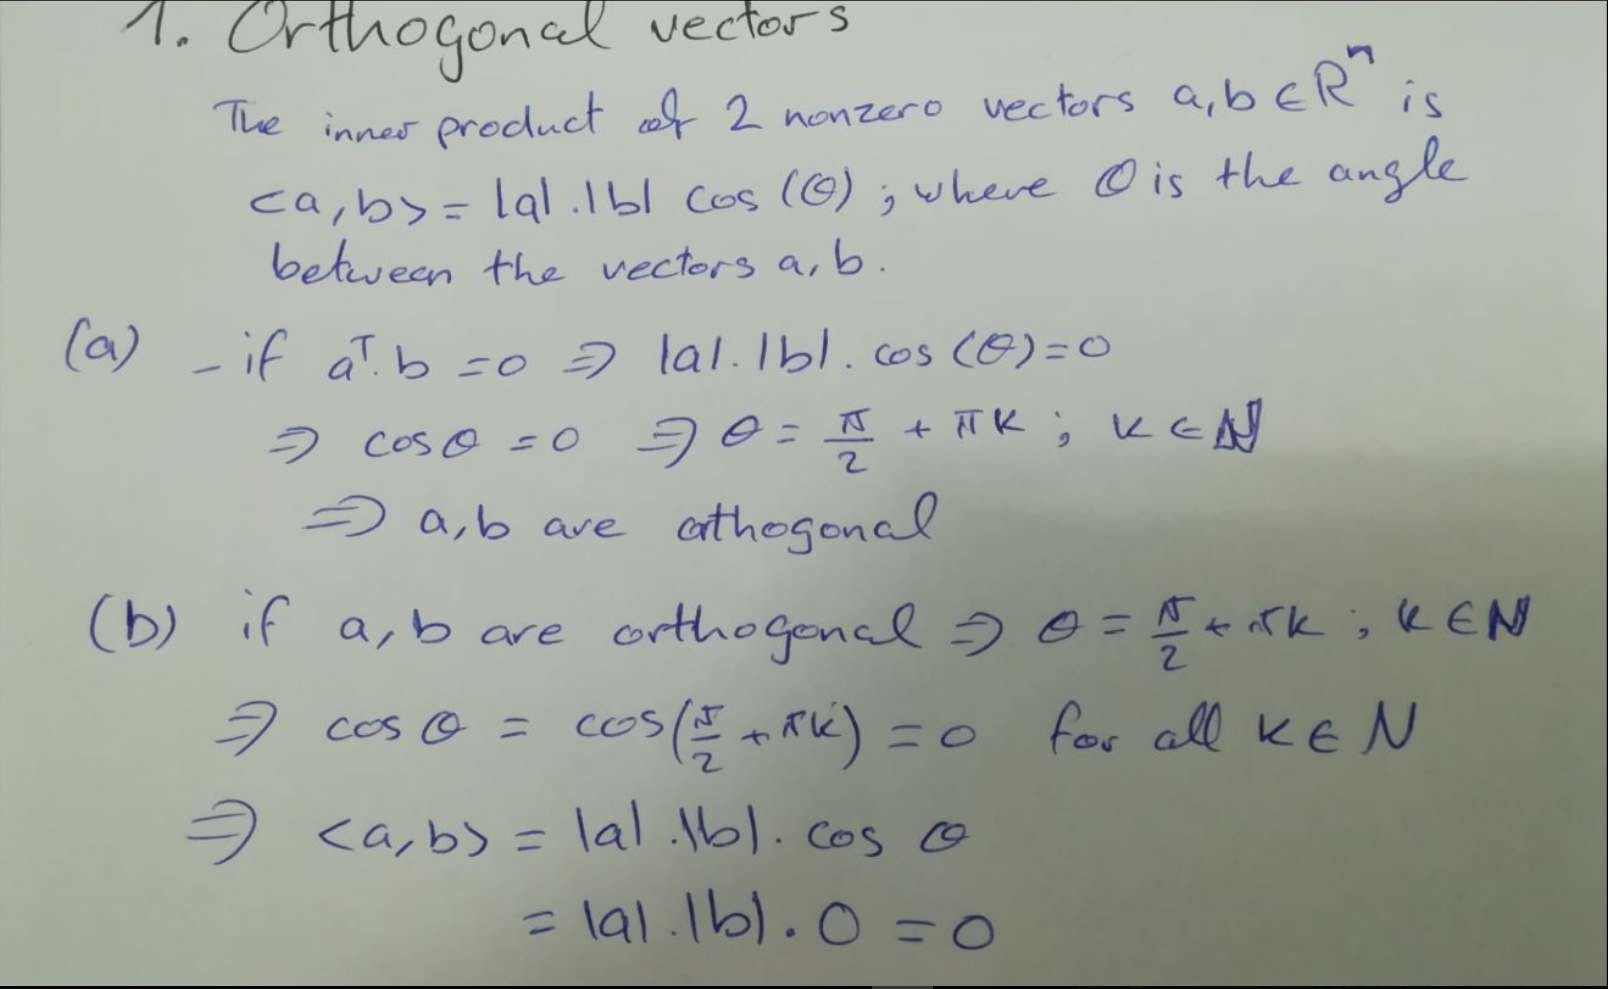 1. Orthogonal vectors
The inner product of 2 nonzero vectors a,b ∈ ℝⁿ is
<a,b> = |a|.|b| cos(θ) ; where θ is the angle
between the vectors a,b.
(a) - if aᵀ.b = 0 ⇒ |a|.|b|. cos(θ)=0
⇒ cosθ = 0 ⇒ θ = π/2 + πK ; K ∈ ℕ
⇒ a,b are orthogonal
(b) if a,b are orthogonal ⇒ θ = π/2 + πk ; k ∈ ℕ
⇒ cos θ = cos(π/2 + πk) = 0 for all K ∈ N
⇒ <a,b> = |a|.|b|. cos θ
= |a|.|b|. 0 = 0